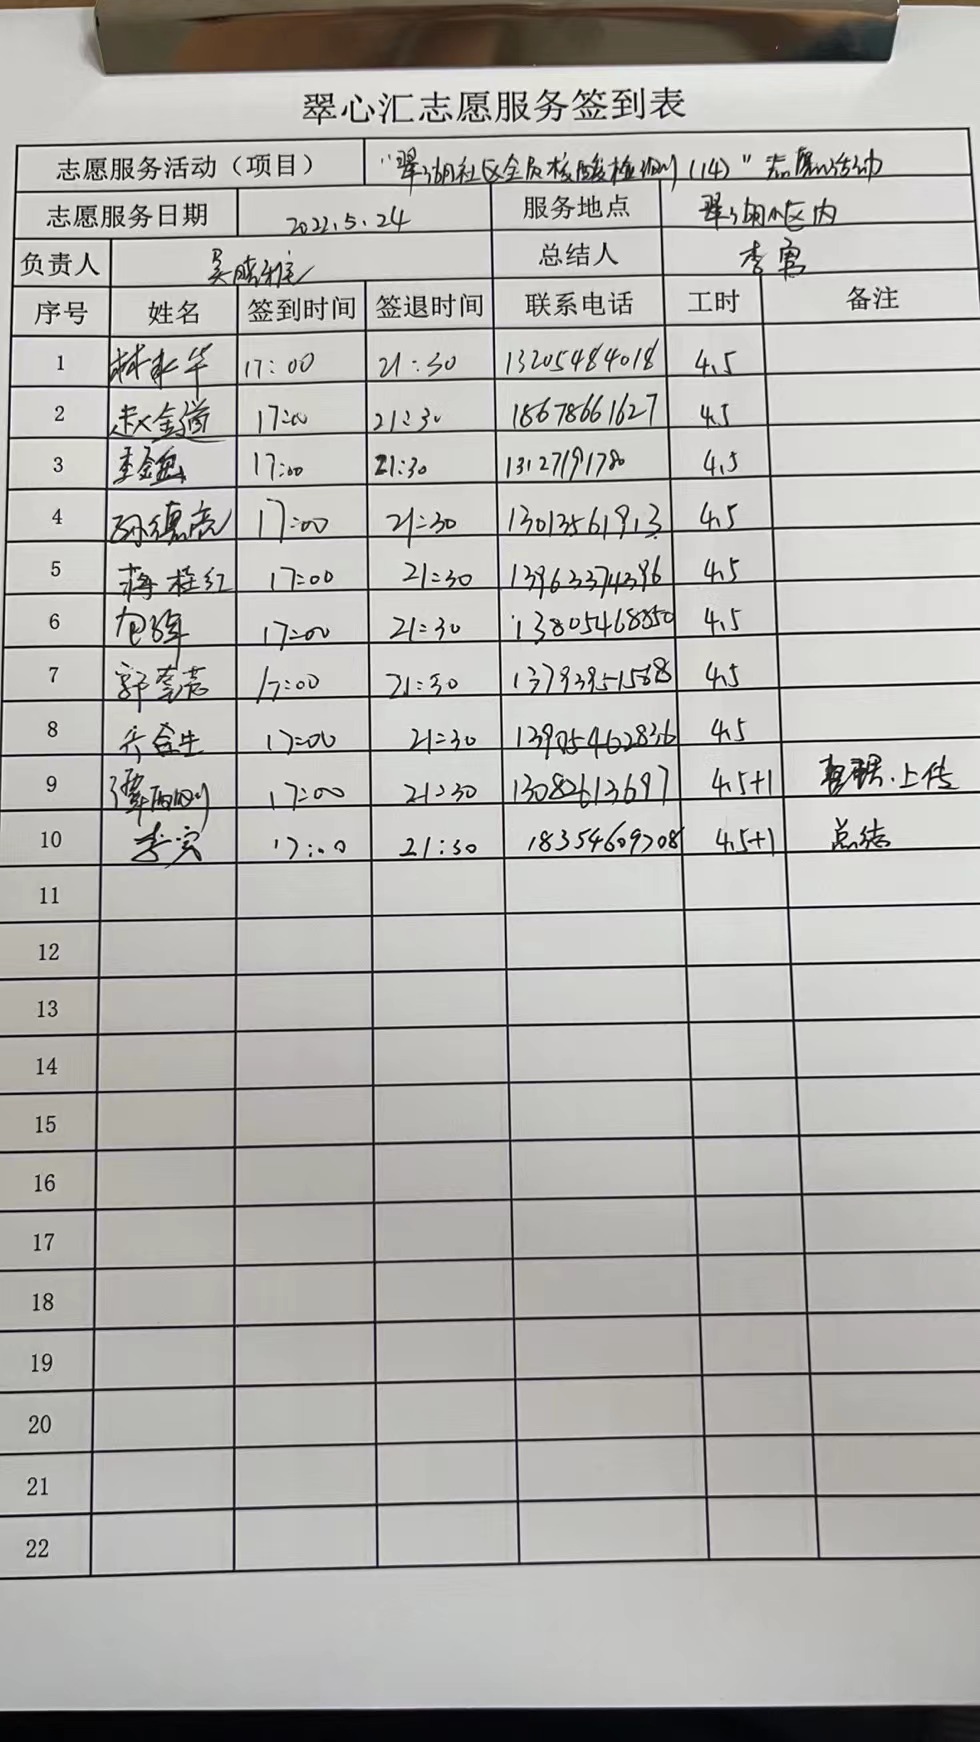 翠心汇志愿服务签到表
志愿服务活动（项目） "翠湖社区全员核酸检测（14）"志愿活动
志愿服务日期 2022.5.24 服务地点 翠湖小区内
负责人 总结人
序号 姓名 签到时间 签退时间 联系电话 工时 备注
1 林永华 17:00 21:30 13205484018 4.5
2 赵金道 17:00 21:30 18678661627 4.5
3 17:00 21:30 13127191780 4.5
4 孙德亮 17:00 21:30 13013561913 4.5
5 蒋桂红 17:00 21:30 13963374396 4.5
6 17:00 21:30 13805468850 4.5
7 17:00 21:30 13793951568 4.5
8 17:00 21:30 13905462836 4.5
9 17:00 21:30 13082613697 4.5+1 上传
10 17:00 21:30 18354609708 4.5+1 总结
11
12
13
14
15
16
17
18
19
20
21
22